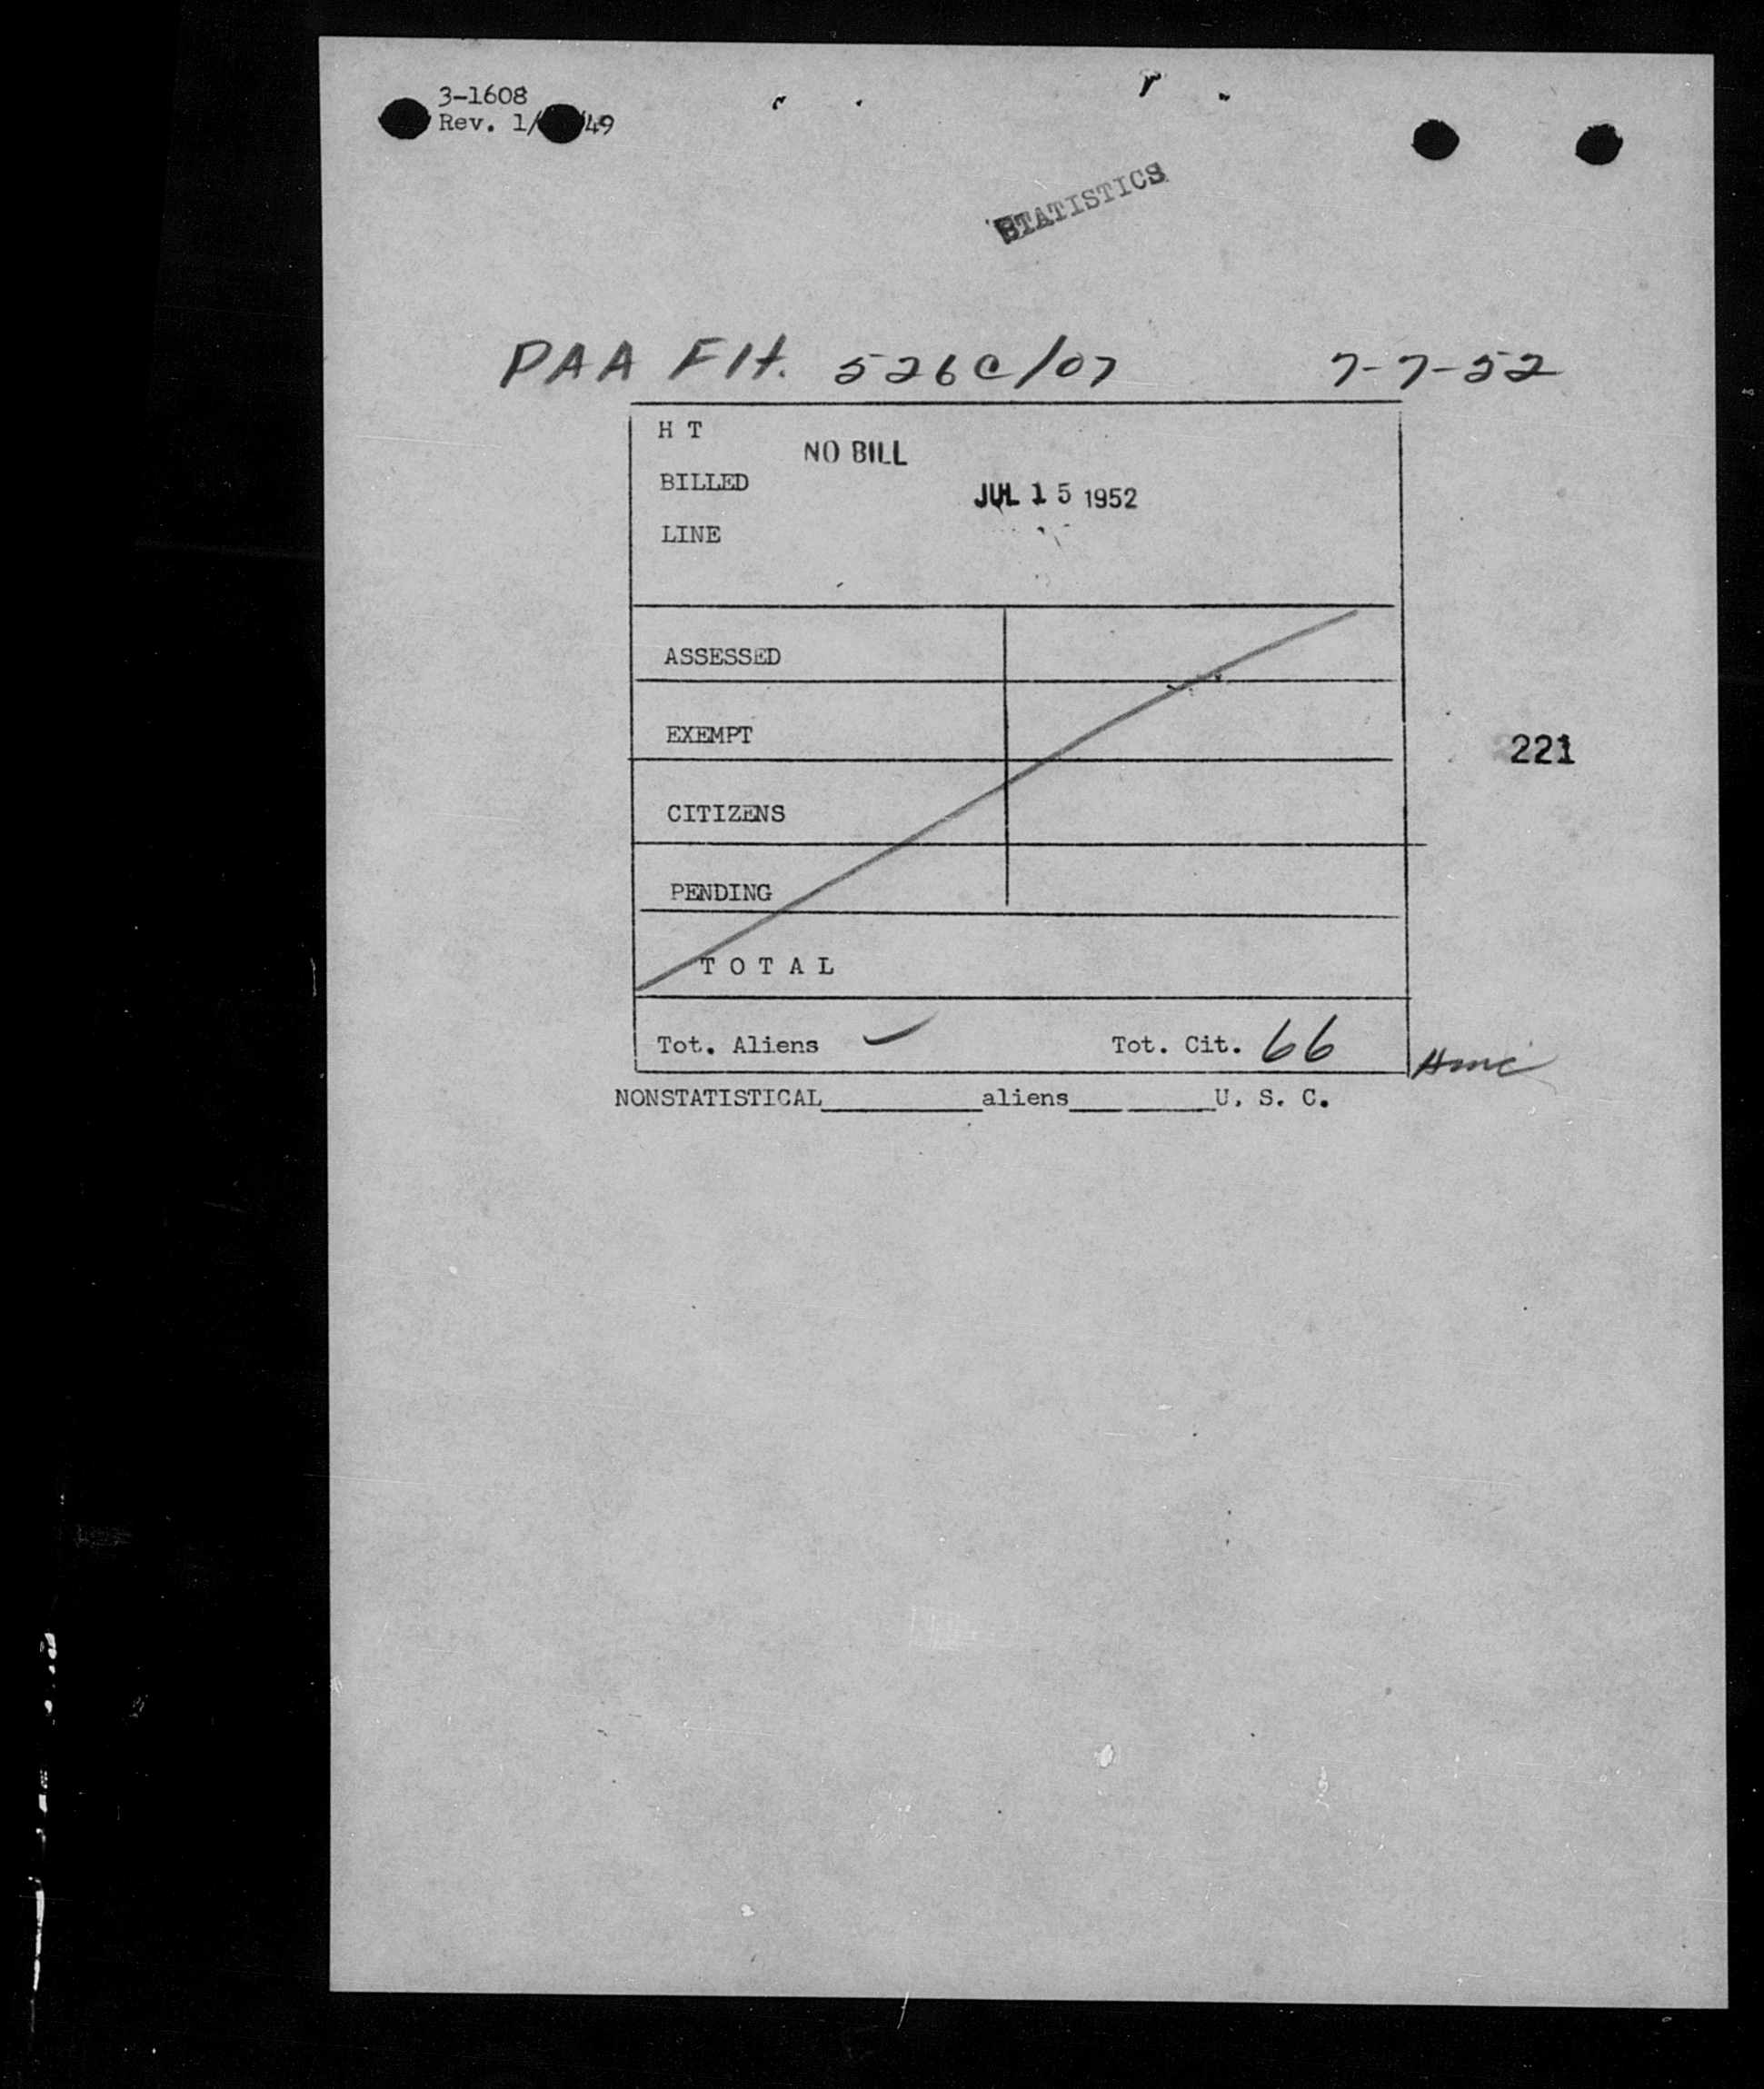 3-1608
Rev. 1/ /49
STATISTICS
PAA Flt. 526C/07 7-7-52
H T
NO BILL
BILLED
JUL 15 1952
LINE
ASSESSED
EXEMPT
221
CITIZENS
PENDING
T O T A L
Tot. Aliens Tot. Cit. 66
NONSTATISTICAL__________aliens_________U. S. C.